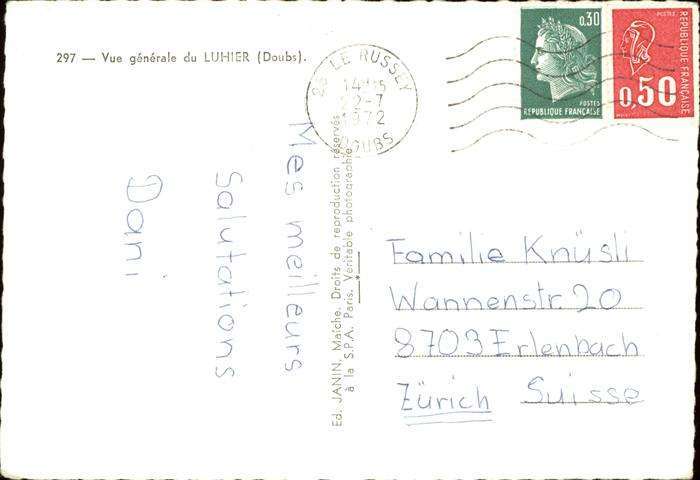 297 — Vue générale du LUHIER (Doubs).
25 LE RUSSEY
14H15
22-7
1972
DOUBS
0,30
POSTES
REPUBLIQUE FRANÇAISE
POSTES
0,50
REPUBLIQUE FRANÇAISE
Mes meilleurs
Salutations
Dani
Ed. JANIN, Maiche. Droits de reproduction réservés
à la S.P.A. Paris. Véritable photographie
Familie Knüsli
Wannenstr. 20
8703 Erlenbach
Zürich Suisse